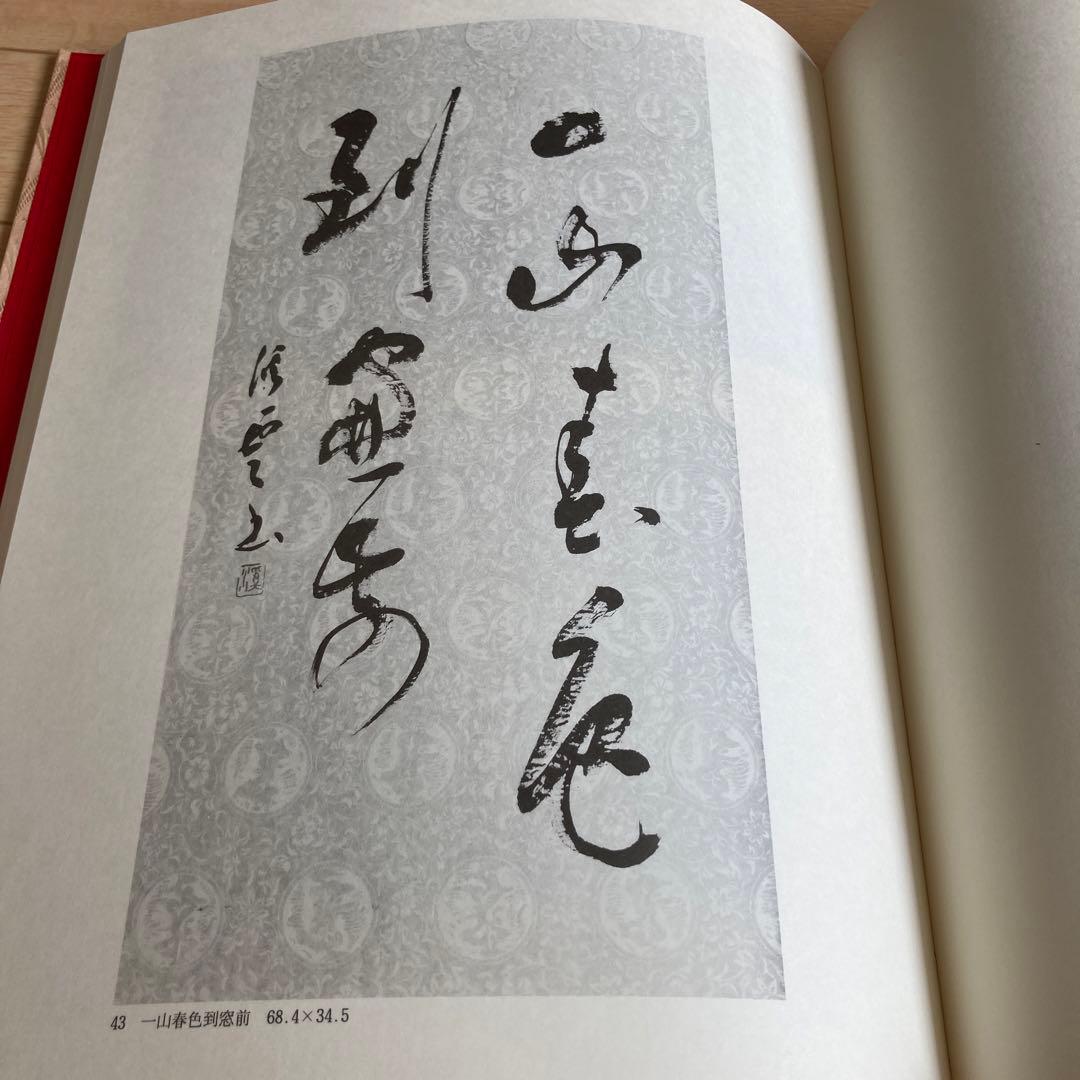 一山春色
到窓前
渓雲書
43 一山春色到窓前 68.4×34.5